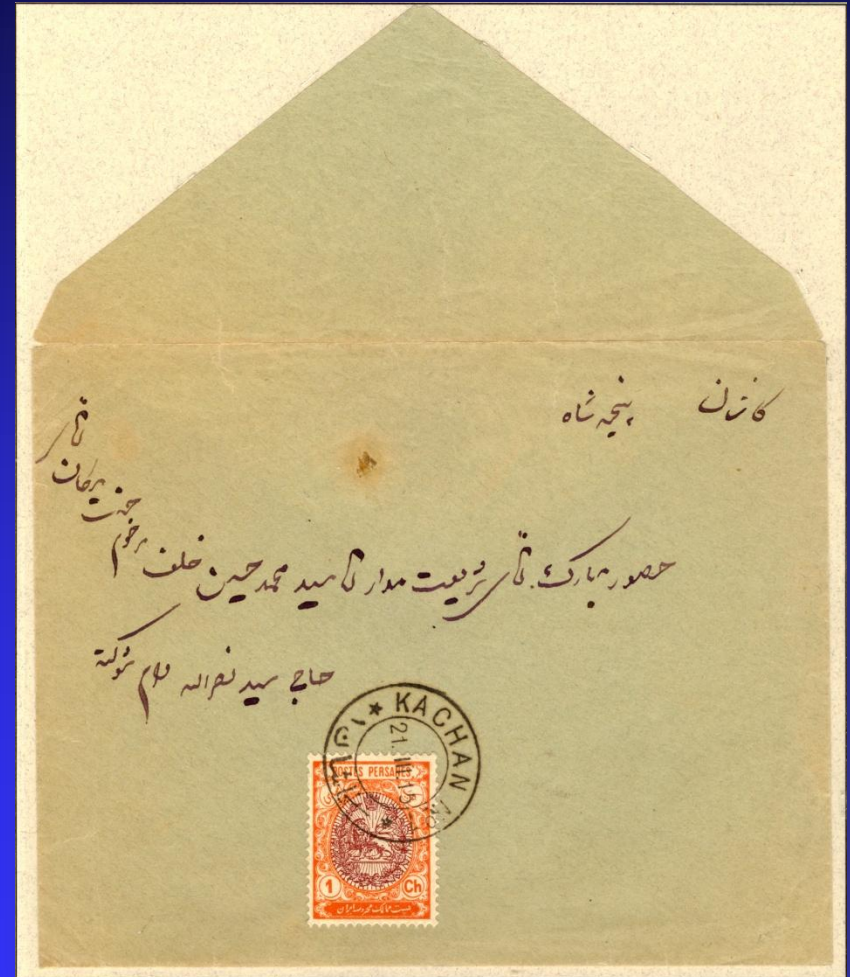 کاشان پنجه شاه
حضور مبارک آقای شریعت مدار آقا سید محمد حسین خلف مرحوم جنت مکان آقای
حاجی سید نصرالله دام شوکته
★ KACHAN
21.III.13
POSTES PERSANES
1 Ch
پست ممالک محروسه ایران